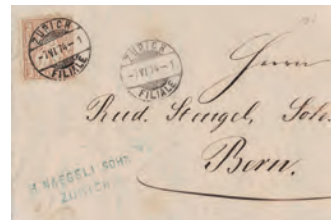 ZÜRICH
-7 VI 74 - 1
FILIALE
ZÜRICH
-7 VI 74 - 1
FILIALE
Herrn
Rud. Stengel,
Bern.
NAEGELI SOHN
ZÜRICH